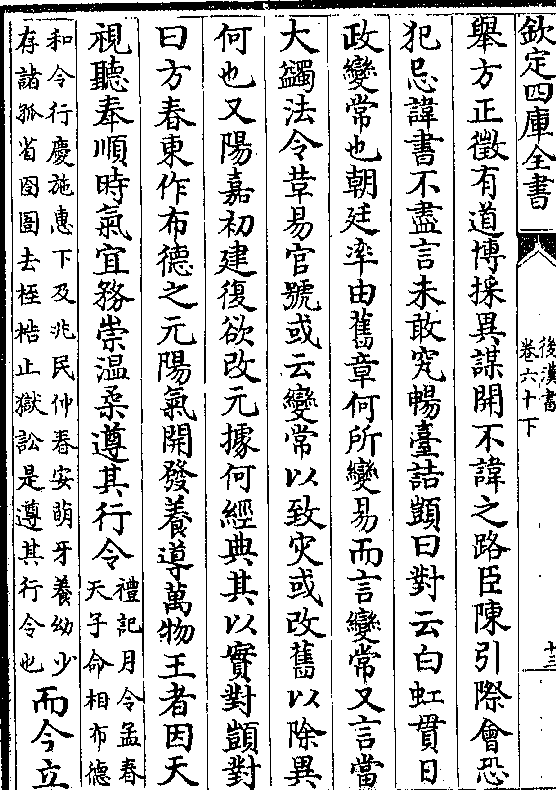 欽定四庫全書
後漢書
卷六十下
十三
舉方正徵有道博採異謀開不諱之路臣陳引際會恐
犯忌諱書不盡言未敢究暢臺詰顗曰對云白虹貫日
政變常也朝廷率由舊章何所變易而言變常又言當
大蠲法令革易官號或云變常以致灾或改舊以除異
何也又陽嘉初建復欲改元據何經典其以實對顗對
曰方春東作布德之元陽氣開發養導萬物王者因天
視聽奉順時氣宜務崇温柔遵其行令
禮記月令孟春
天子命相布德
和令行慶施惠下及兆民仲春安萌牙養幼少
存諸孤省囹圄去桎梏止獄訟是遵其行令也
而今立